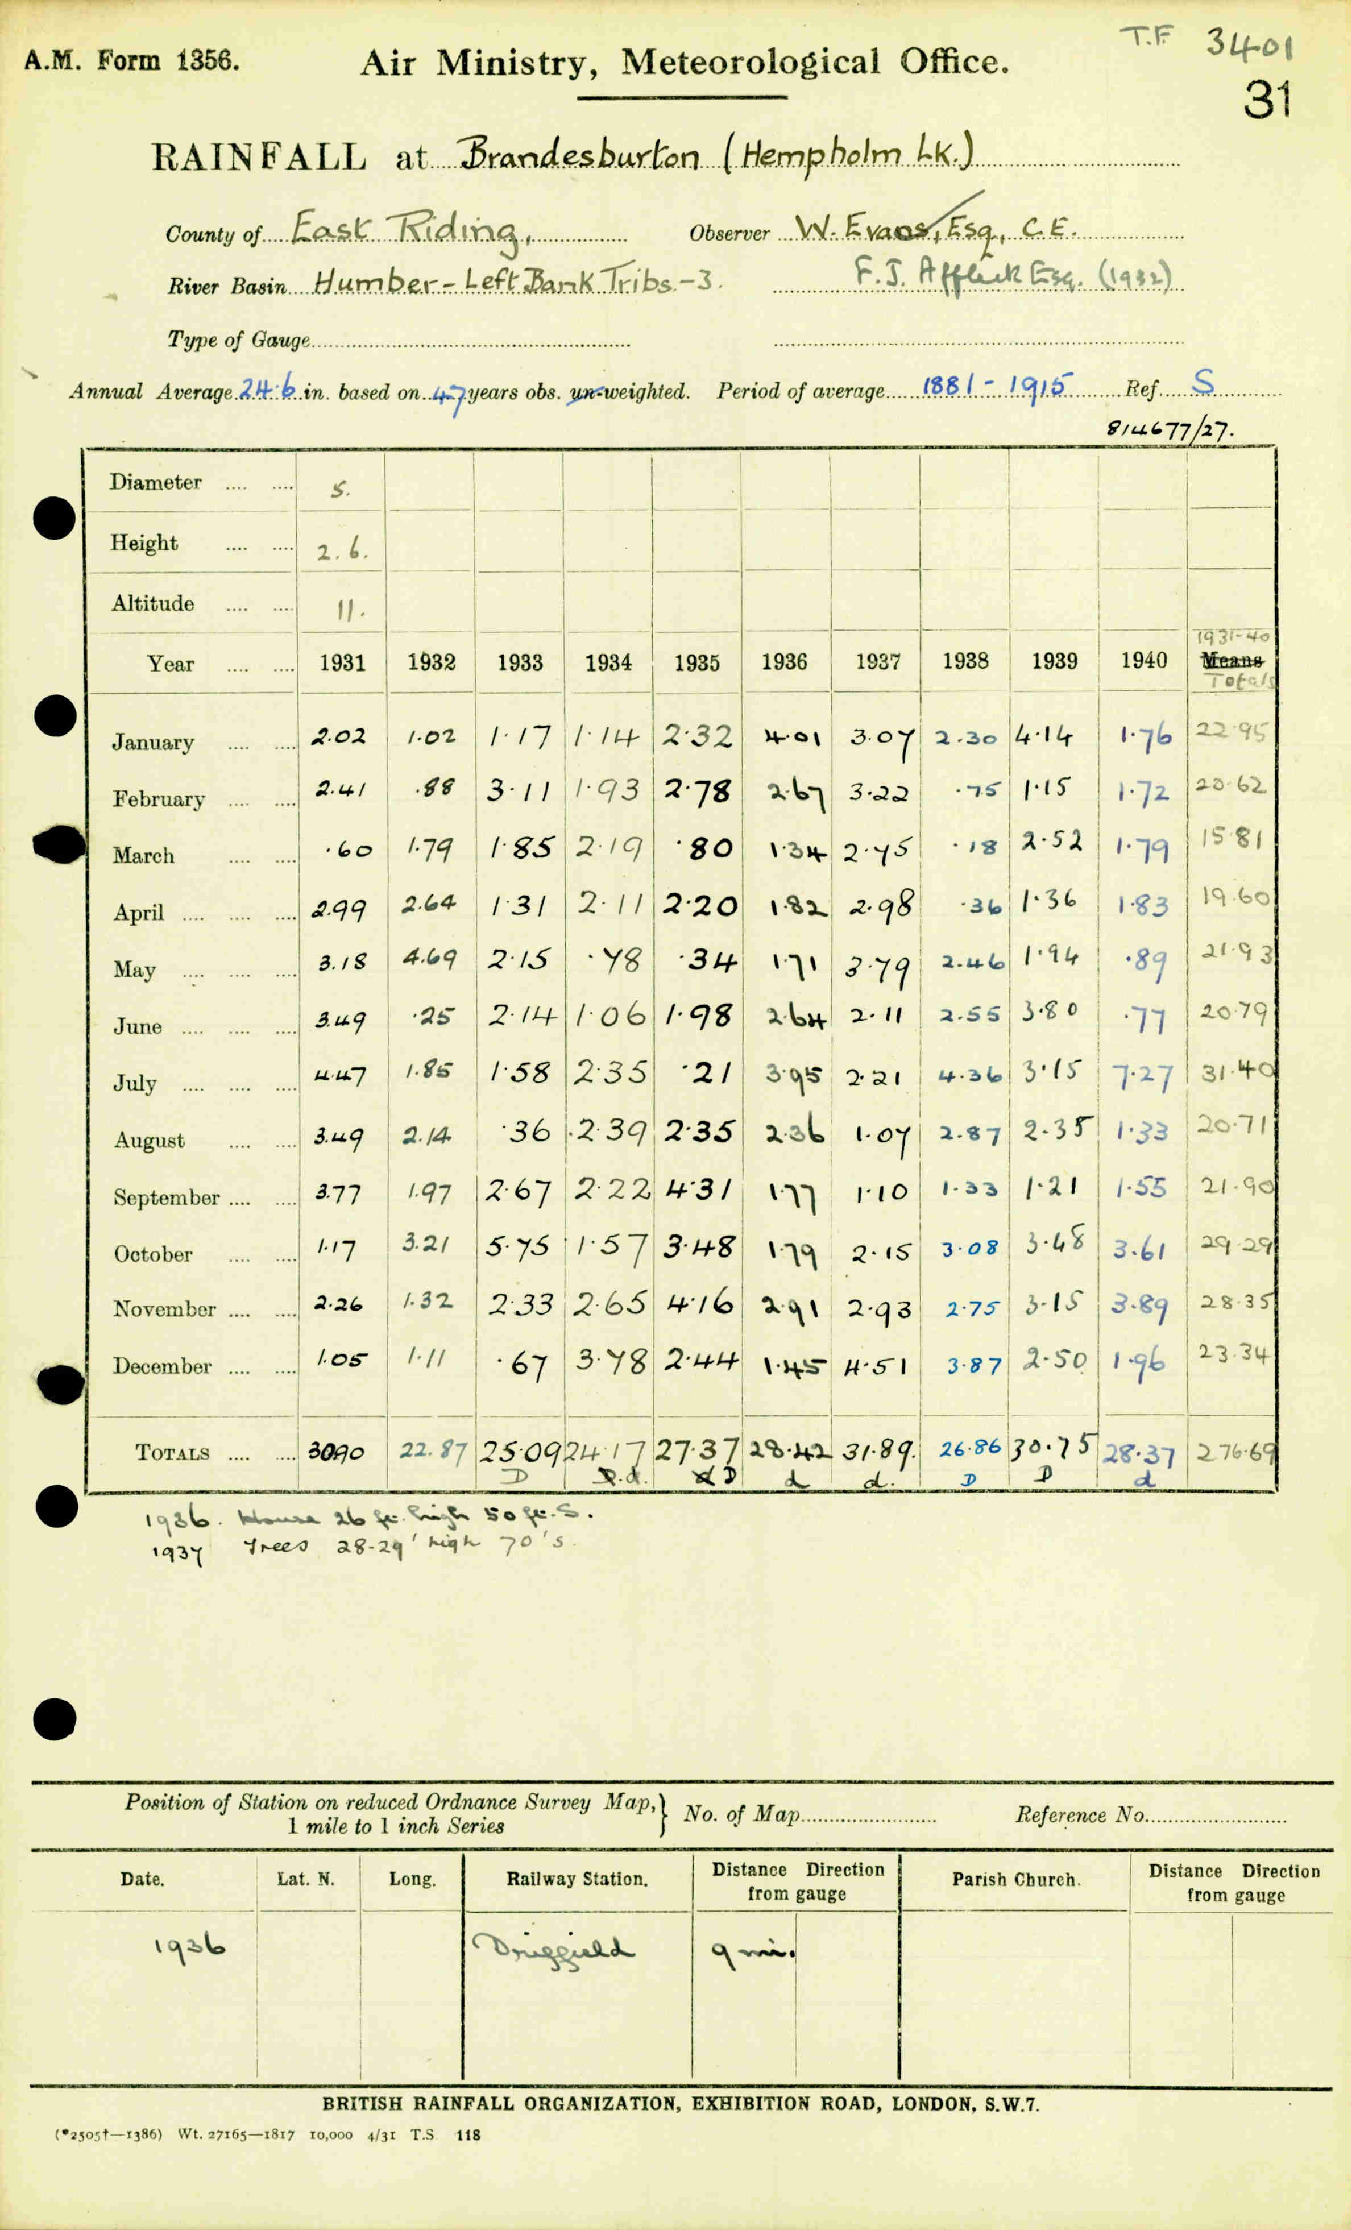 T.F. 3401
A.M. Form 1356. Air Ministry, Meteorological Office.
31
RAINFALL at Brandesburton (Hempholm Lk.)
County of East Riding, Observer W. Evans, Esq., C.E.
River Basin Humber - Left Bank Tribs. - 3. F. J. Affleck Esq. (1932)
Type of Gauge
Annual Average 24.6 in. based on 47 years obs. un-weighted. Period of average 1881 - 1915 Ref. S
814677/27.
Diameter 5.
Height 2.6.
Altitude 11.
1931-40
Year 1931 1932 1933 1934 1935 1936 1937 1938 1939 1940 Means
Totals
January 2.02 1.02 1.17 1.14 2.32 4.01 3.07 2.30 4.14 1.76 22.95
February 2.41 .88 3.11 1.93 2.78 2.67 3.22 .75 1.15 1.72 20.62
March .60 1.79 1.85 2.19 .80 1.34 2.75 .18 2.52 1.79 15.81
April 2.99 2.64 1.31 2.11 2.20 1.82 2.98 .36 1.36 1.83 19.60
May 3.18 4.69 2.15 .78 .34 1.71 3.79 2.46 1.94 .89 21.93
June 3.49 .25 2.14 1.06 1.98 2.64 2.11 2.55 3.80 .77 20.79
July 4.47 1.85 1.58 2.35 .21 3.95 2.21 4.36 3.15 7.27 31.40
August 3.49 2.14 .36 2.39 2.35 2.36 1.07 2.87 2.35 1.33 20.71
September 3.77 1.97 2.67 2.22 4.31 1.77 1.10 1.33 1.21 1.55 21.90
October 1.17 3.21 5.75 1.57 3.48 1.79 2.15 3.08 3.48 3.61 29.29
November 2.26 1.32 2.33 2.65 4.16 2.91 2.93 2.75 3.15 3.89 28.35
December 1.05 1.11 .67 3.78 2.44 1.45 4.51 3.87 2.50 1.96 23.34
TOTALS 30.90 22.87 25.09 24.17 27.37 28.42 31.89. 26.86 30.75 28.37 276.69
D D.d. d D d d. D D d
1936. House 26 ft. high 50 ft. S.
1937 Trees 28-29' high 70' S.
Position of Station on reduced Ordnance Survey Map, } No. of Map Reference No.
1 mile to 1 inch Series
Date. Lat. N. Long. Railway Station. Distance Direction from gauge Parish Church. Distance Direction from gauge
1936 Driffield 9 mi.
BRITISH RAINFALL ORGANIZATION, EXHIBITION ROAD, LONDON, S.W.7.
(*2505†—1386) Wt. 27165—1817 10,000 4/31 T.S 118